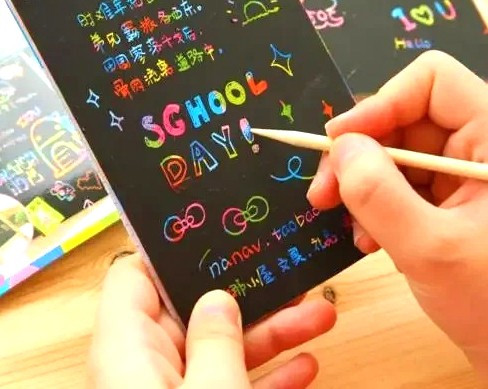 时难年
弟兄羁旅各西东。
田园寥落干戈后,
骨肉流离道路中。
SCHOOL
DAY!
nanav.taobao
那小屋 文具
I U
Hello